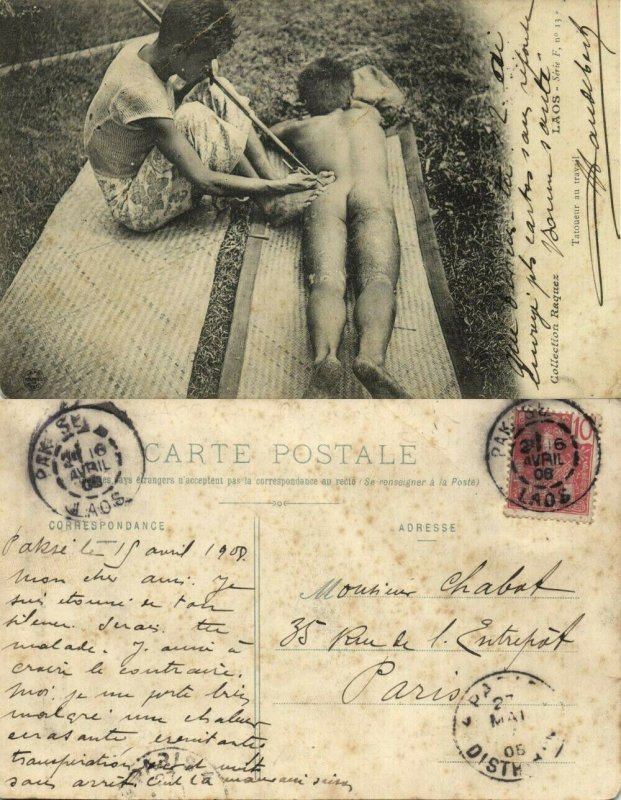 LAOS - Série F, n° 13
Tatoueur au travail
Collection Raquez
envoyé
cartes sans réponse
Bonne santé
CARTE POSTALE
pays étrangers n'acceptent pas la correspondance au recto (Se renseigner à la Poste)
CORRESPONDANCE
ADRESSE
PAKSE
16
AVRIL
08
LAOS
PAKSE
16
AVRIL
08
LAOS
10
Paksé le 15 avril 1908
Mon cher ami. Je
suis étonné de ton
silence. Serais tu
malade. J'aime à
croire le contraire.
Moi, je me porte bien
malgré une chaleur
écrasante
transpiration jour et nuit
sans arrêt
Monsieur Chabot
35 Rue de l'Entrepôt
Paris
MAI
DISTR